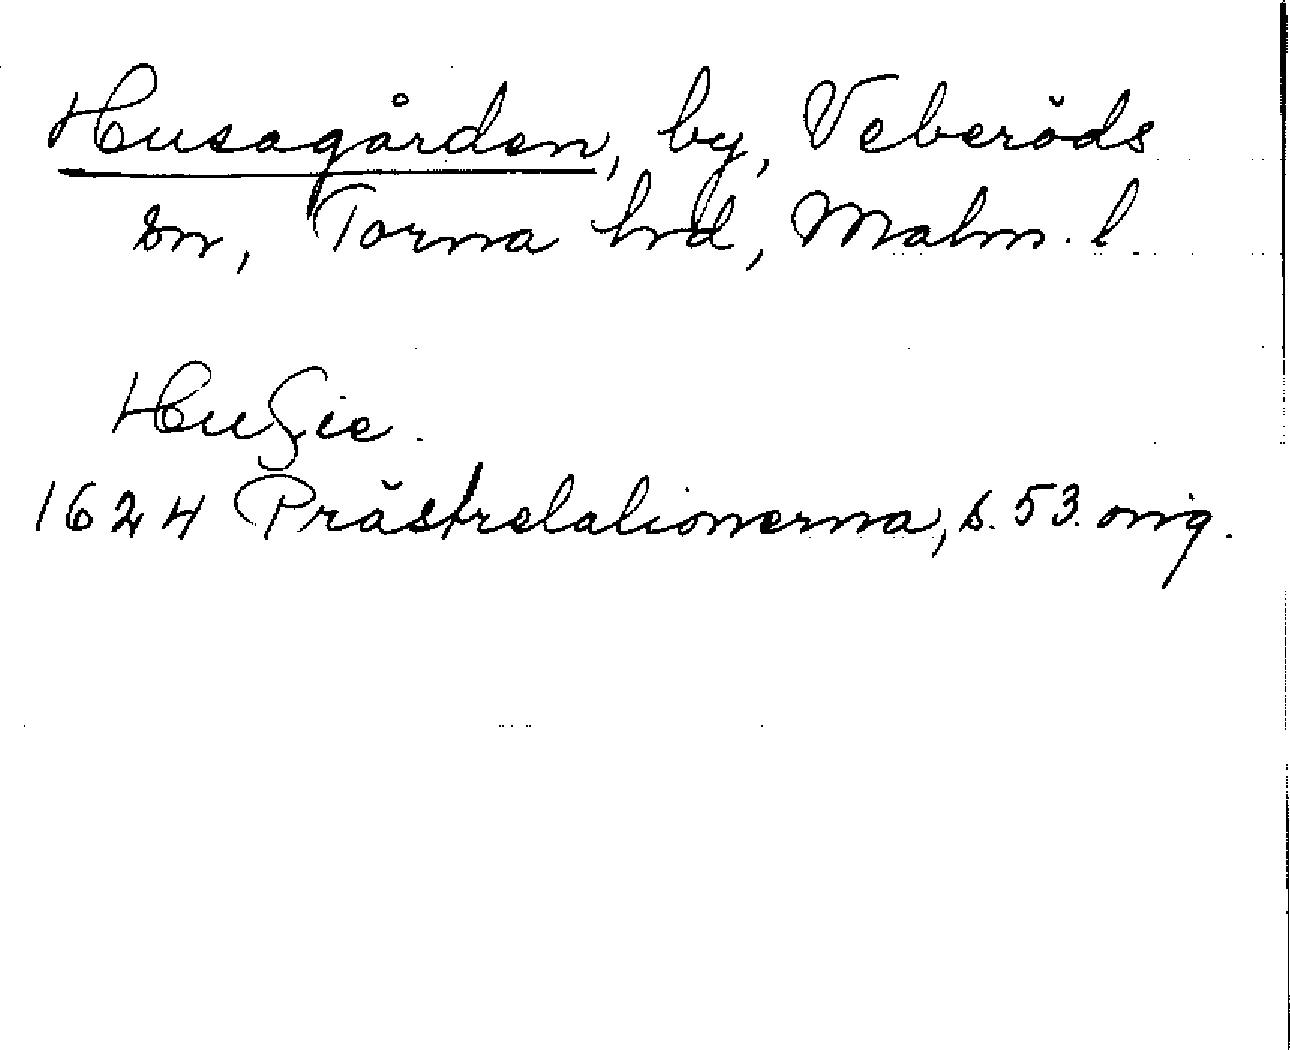 Husagården, by, Veberöds
sn, Torna hrd, Malm. l.
Hußie.
1624 Prästrelationerna, s. 53. orig.